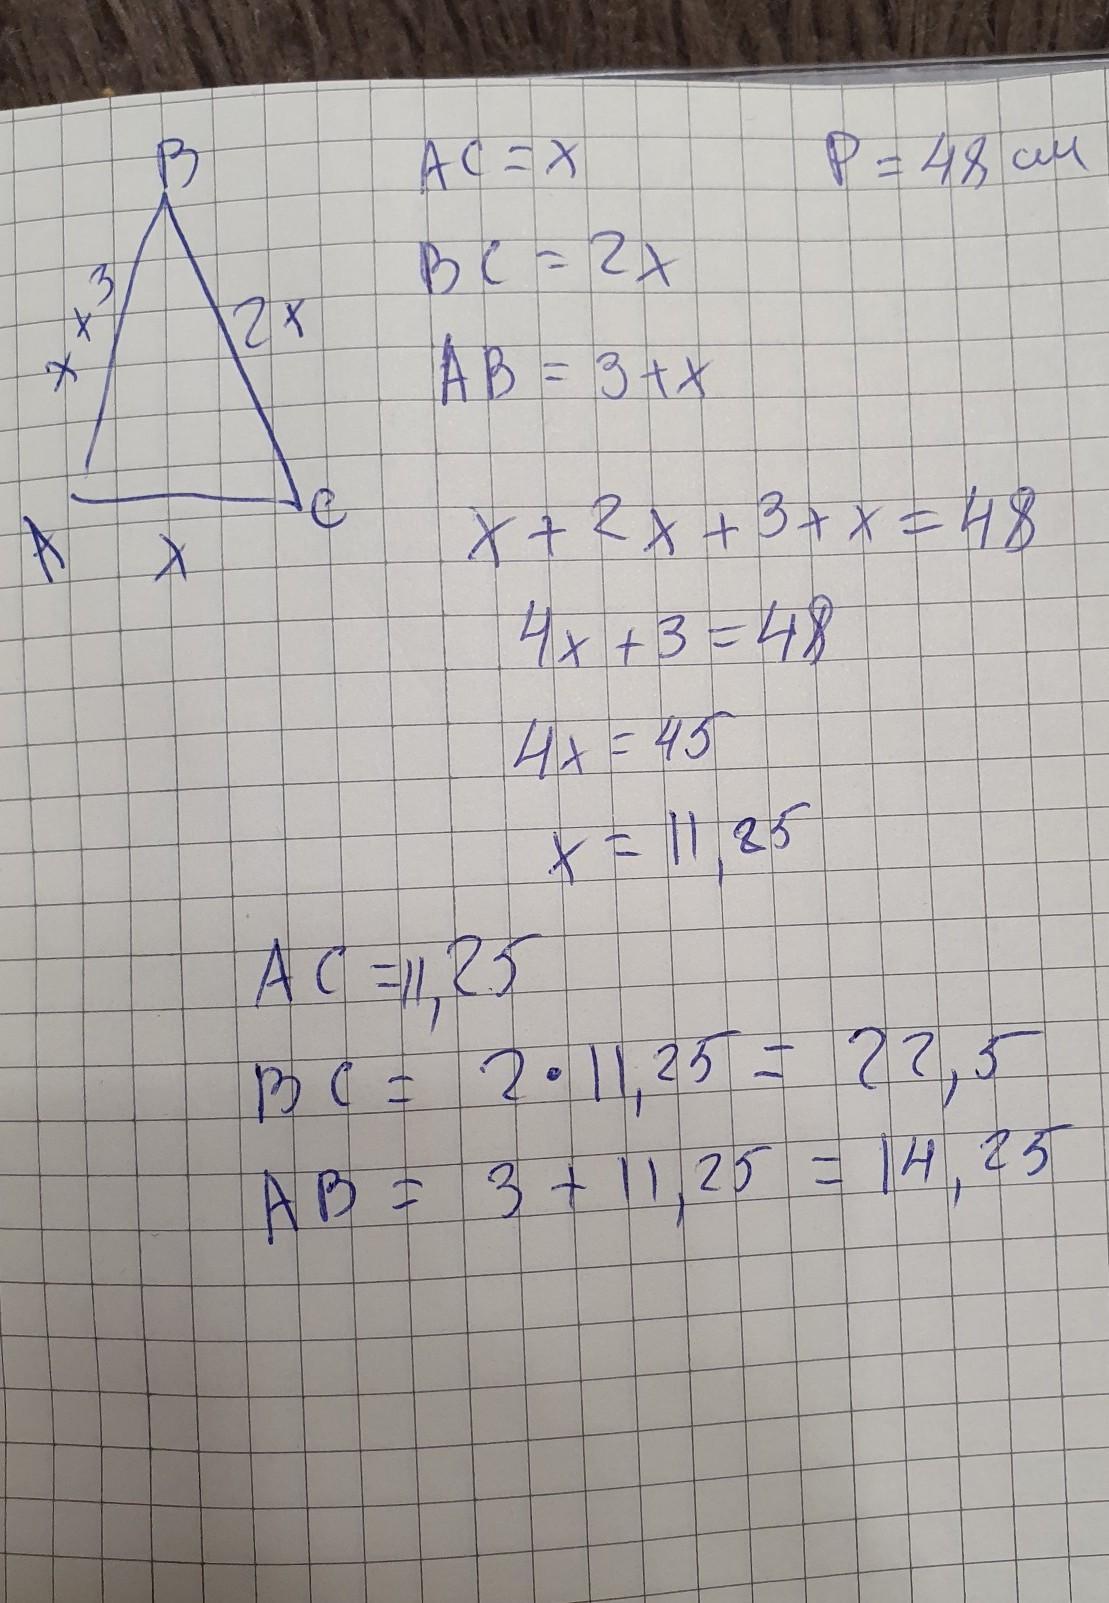 B
AC = x
P = 48 см
BC = 2x
3
x
x
2x
AB = 3 + x
A
C
x
x + 2x + 3 + x = 48
4x + 3 = 48
4x = 45
x = 11,25
AC = 11,25
BC = 2 • 11,25 = 22,5
AB = 3 + 11,25 = 14,25